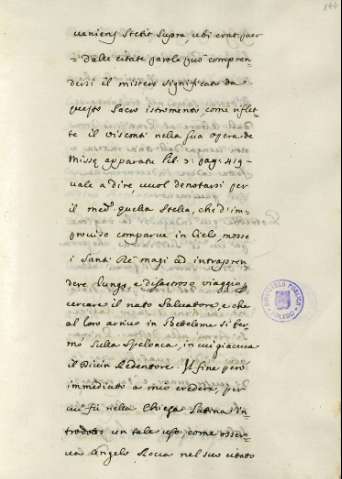 veniens stetit supra, ubi erat puer
Dalle citate parole può compren
dersi il mistero significato da
questo Sacro istromento come riflet
te il Visconti nella sua opera de
Missę apparatu lib: 2: pag: 419
vale a dire, vuol denotarsi per
il med.º quella Stella, che d'im
proviso comparve in Cielo, mosse
i Santi Re magi ad intrapren
dere lungo, e disastroso viaggio,
cercare il nato Salvatore, e che
al loro arrivo in Betteleme si fer
mò sulla Spelonca, in cui giaceva
il Divin Redentore. Il fine però
immediato a mio credere, per
cui fu nella Chiesa Latina in
trodotto un tale uso, come osser
va Angelo Rocca nel suo
BIBLIOTECA PUBLICA
TOLEDO